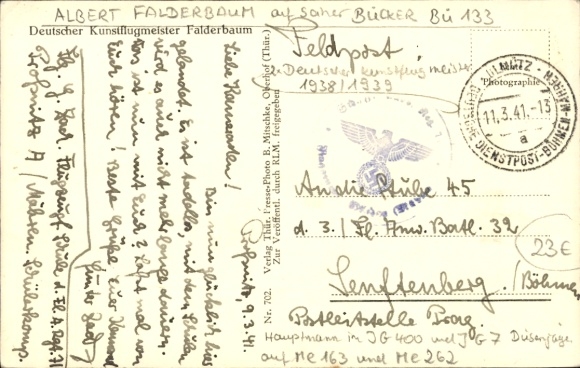 ALBERT FALDERBAUM auf seiner BÜCKER BÜ 133
Deutscher Kunstflugmeister Falderbaum
Feldpost
Deutscher Kunstflugmeister
1938/1939
Photographie
OLMÜTZ - MÄHREN
11.3.41.-13
a
DEUTSCHE DIENSTPOST-BÖHMEN-
An die Stube 45
d. 3./Fl. Anw. Batl. 32
Senftenberg/Böhmen
Postleitstelle Prag.
23€
Hauptmann in JG 400 und JG 7 Düsenjäger
auf Me 163 und Me 262
Nr. 702. Verlag Thür. Presse-Photo B. Mitschke, Oberhof (Thür.)
Zur Veröffentl. durch RLM. freigegeben
Proßnitz, 9.3.41.
Liebe Kameraden!
Bin nun glücklich hier
gelandet. Es ist tadellos, mit dem Schulen
wird es auch nicht mehr lange dauern.
Was ist nun mit Euch? Laßt mal von
Euch hören! Beste Grüße Euer Kamerad
Günter
Proßnitz 7/Mähren. Schülerkomp.